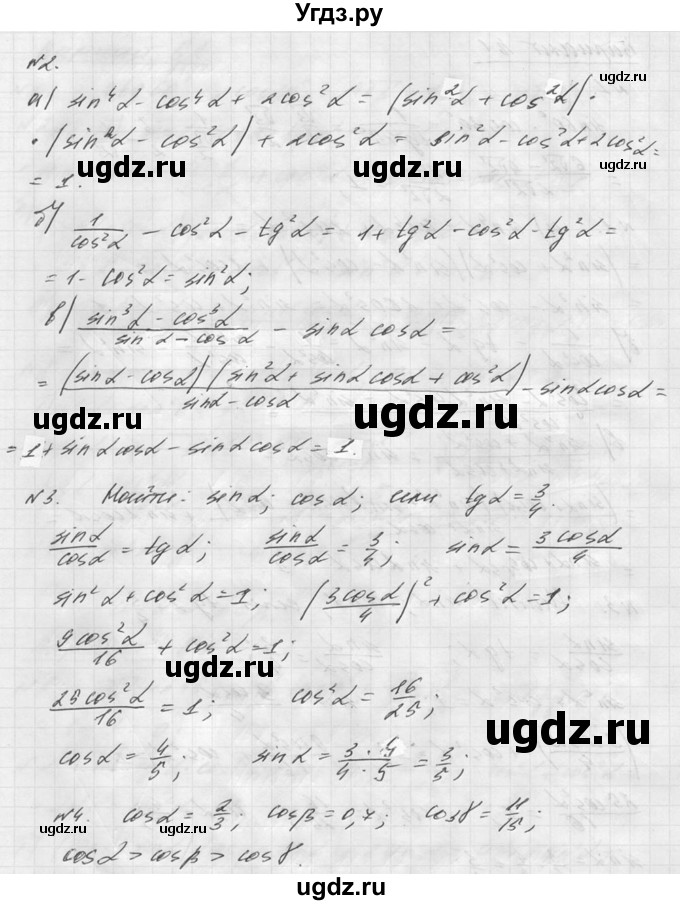 Угдз.ру
№2.
а) sin⁴α - cos⁴α + 2cos²α = (sin²α + cos²α) ·
· (sin²α - cos²α) + 2cos²α = sin²α - cos²α + 2cos²α =
ugdz.ru ugdz.ru
= 1.
б) 1/cos²α - cos²α - tg²α = 1 + tg²α - cos²α - tg²α =
= 1 - cos²α = sin²α;
ugdz.ru
в) (sin³α - cos³α)/(sin α - cos α) - sinα cosα =
= (sinα - cosα)(sin²α + sinα cosα + cos²α)/(sinα - cosα) - sinα cosα =
ugdz.ru ugdz.ru
= 1 + sinα cosα - sinα cosα = 1.
№3. Найти: sinα; cosα; или tgα = 3/4.
sinα/cosα = tgα; sinα/cosα = 3/4; sinα = 3cosα/4
sin²α + cos²α = 1; (3cosα/4)² + cos²α = 1;
9cos²α/16 + cos²α = 1;
ugdz.ru
25cos²α/16 = 1; cos²α = 16/25;
ugdz.ru
cosα = 4/5; sinα = 3·4/4·5 = 3/5;
№4. cosα = 2/3; cosβ = 0,7; cosγ = 11/15;
ugdz.ru ugdz.ru
cosα > cosβ > cosγ.
ugdz.ru